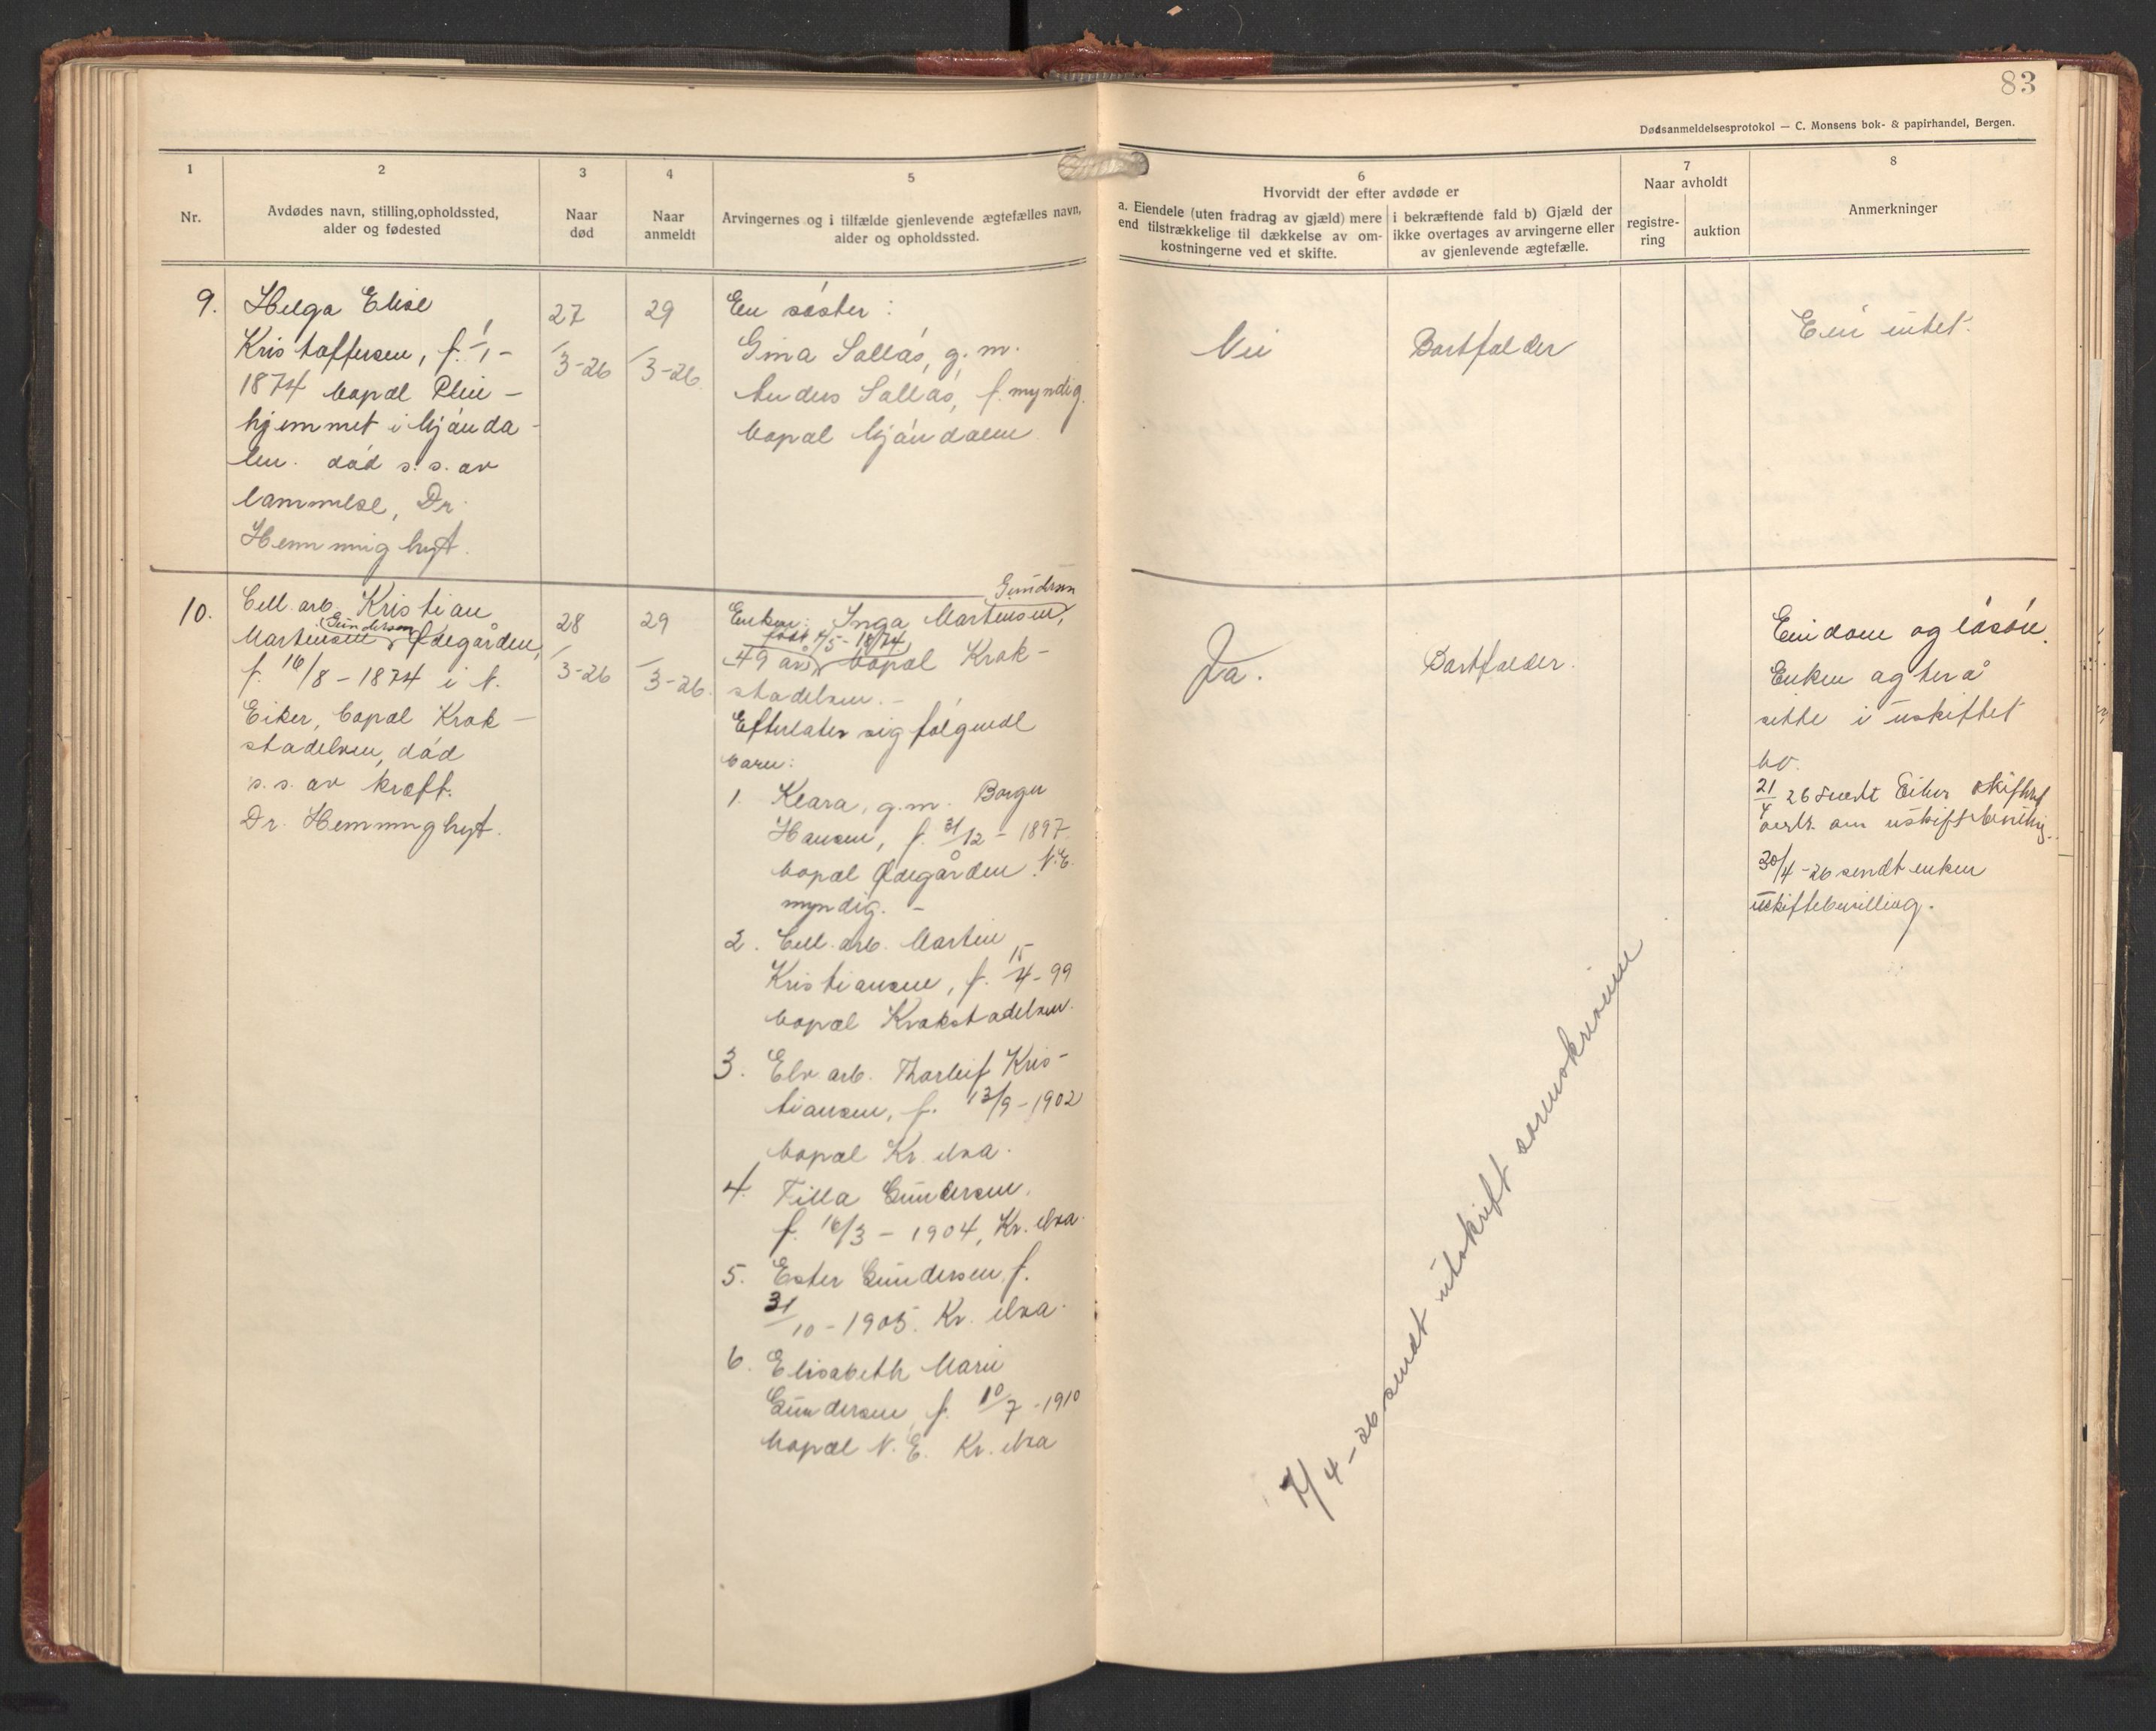 83
Dødsanmeldelsesprotokol — C. Monsens bok- & papirhandel, Bergen.
1
Nr.
2
Avdødes navn, stilling, opholdssted,
alder og fødested
3
Naar
død
4
Naar
anmeldt
5
Arvingernes og i tilfælde gjenlevende ægtefælles navn,
alder og opholdssted.
6
Hvorvidt der efter avdøde er
a. Eiendele (uten fradrag av gjæld) mere
end tilstrækkelige til dækkelse av om-
kostningerne ved et skifte.
i bekræftende fald b) Gjæld der
ikke overtages av arvingerne eller
av gjenlevende ægtefælle.
7
Naar avholdt
registre-
ring
auktion
8
Anmerkninger
9.
Helga Elise
Kristoffersen, f. 1/1 -
1874 bopæl Pleie-
hjemmet i Mjønda-
len. død s. s. av
lammelse, Dr.
Hemminghyt.
27/3-26
29/3-26.
En søster:
Gina Sollås, g. m.
Anders Sollås, f. myndig.
bopæl Mjøndalen
Nei
Bortfalder
Eiei intet.
10.
Cell. arb. Kristian
Gundersen
Martinsen Ødegården,
f. 16/8 - 1874 i N.
Eiker, bopæl Krok-
stadelven, død
s. s. av kræft.
Dr. Hemminghyt.
28/3-26
29/3-26.
Gundersen
Enken: Inga Martinsen,
49 år, bopæl Krok-
stadelven. -
Efterlater sig følgende
barn:
1. Klara, g. m. Borger
Hansen, f. 31/12 - 1897
bopæl Ødegården N. E.
myndig. -
2. Cell. arb. Martin
Kristiansen, f. 15/4 - 99
bopæl Krokstadelven.
3. Elv arb. Thorleif Kris-
tiansen, f. 13/9 - 1902
bopæl Kr. elva.
4. Tilla Gundersen,
f. 16/3 - 1904, Kr. elva.
5. Ester Gundersen, f.
31/10 - 1905. Kr. elva.
6. Elisabeth Marie
Gundersen, f. 10/7 - 1910
bopæl N. E. Kr. elva
Ja.
Bortfalder.
Eiendom og løsøre.
Enken agter å
sitte i uskiftet
bo.
21/4 26 sendt Eiker skifteret
om uskiftebevillig.
30/4 - 26 sendt enken
uskiftebevilling.
7/4 - 26 sendt utskrift sorenskriveren